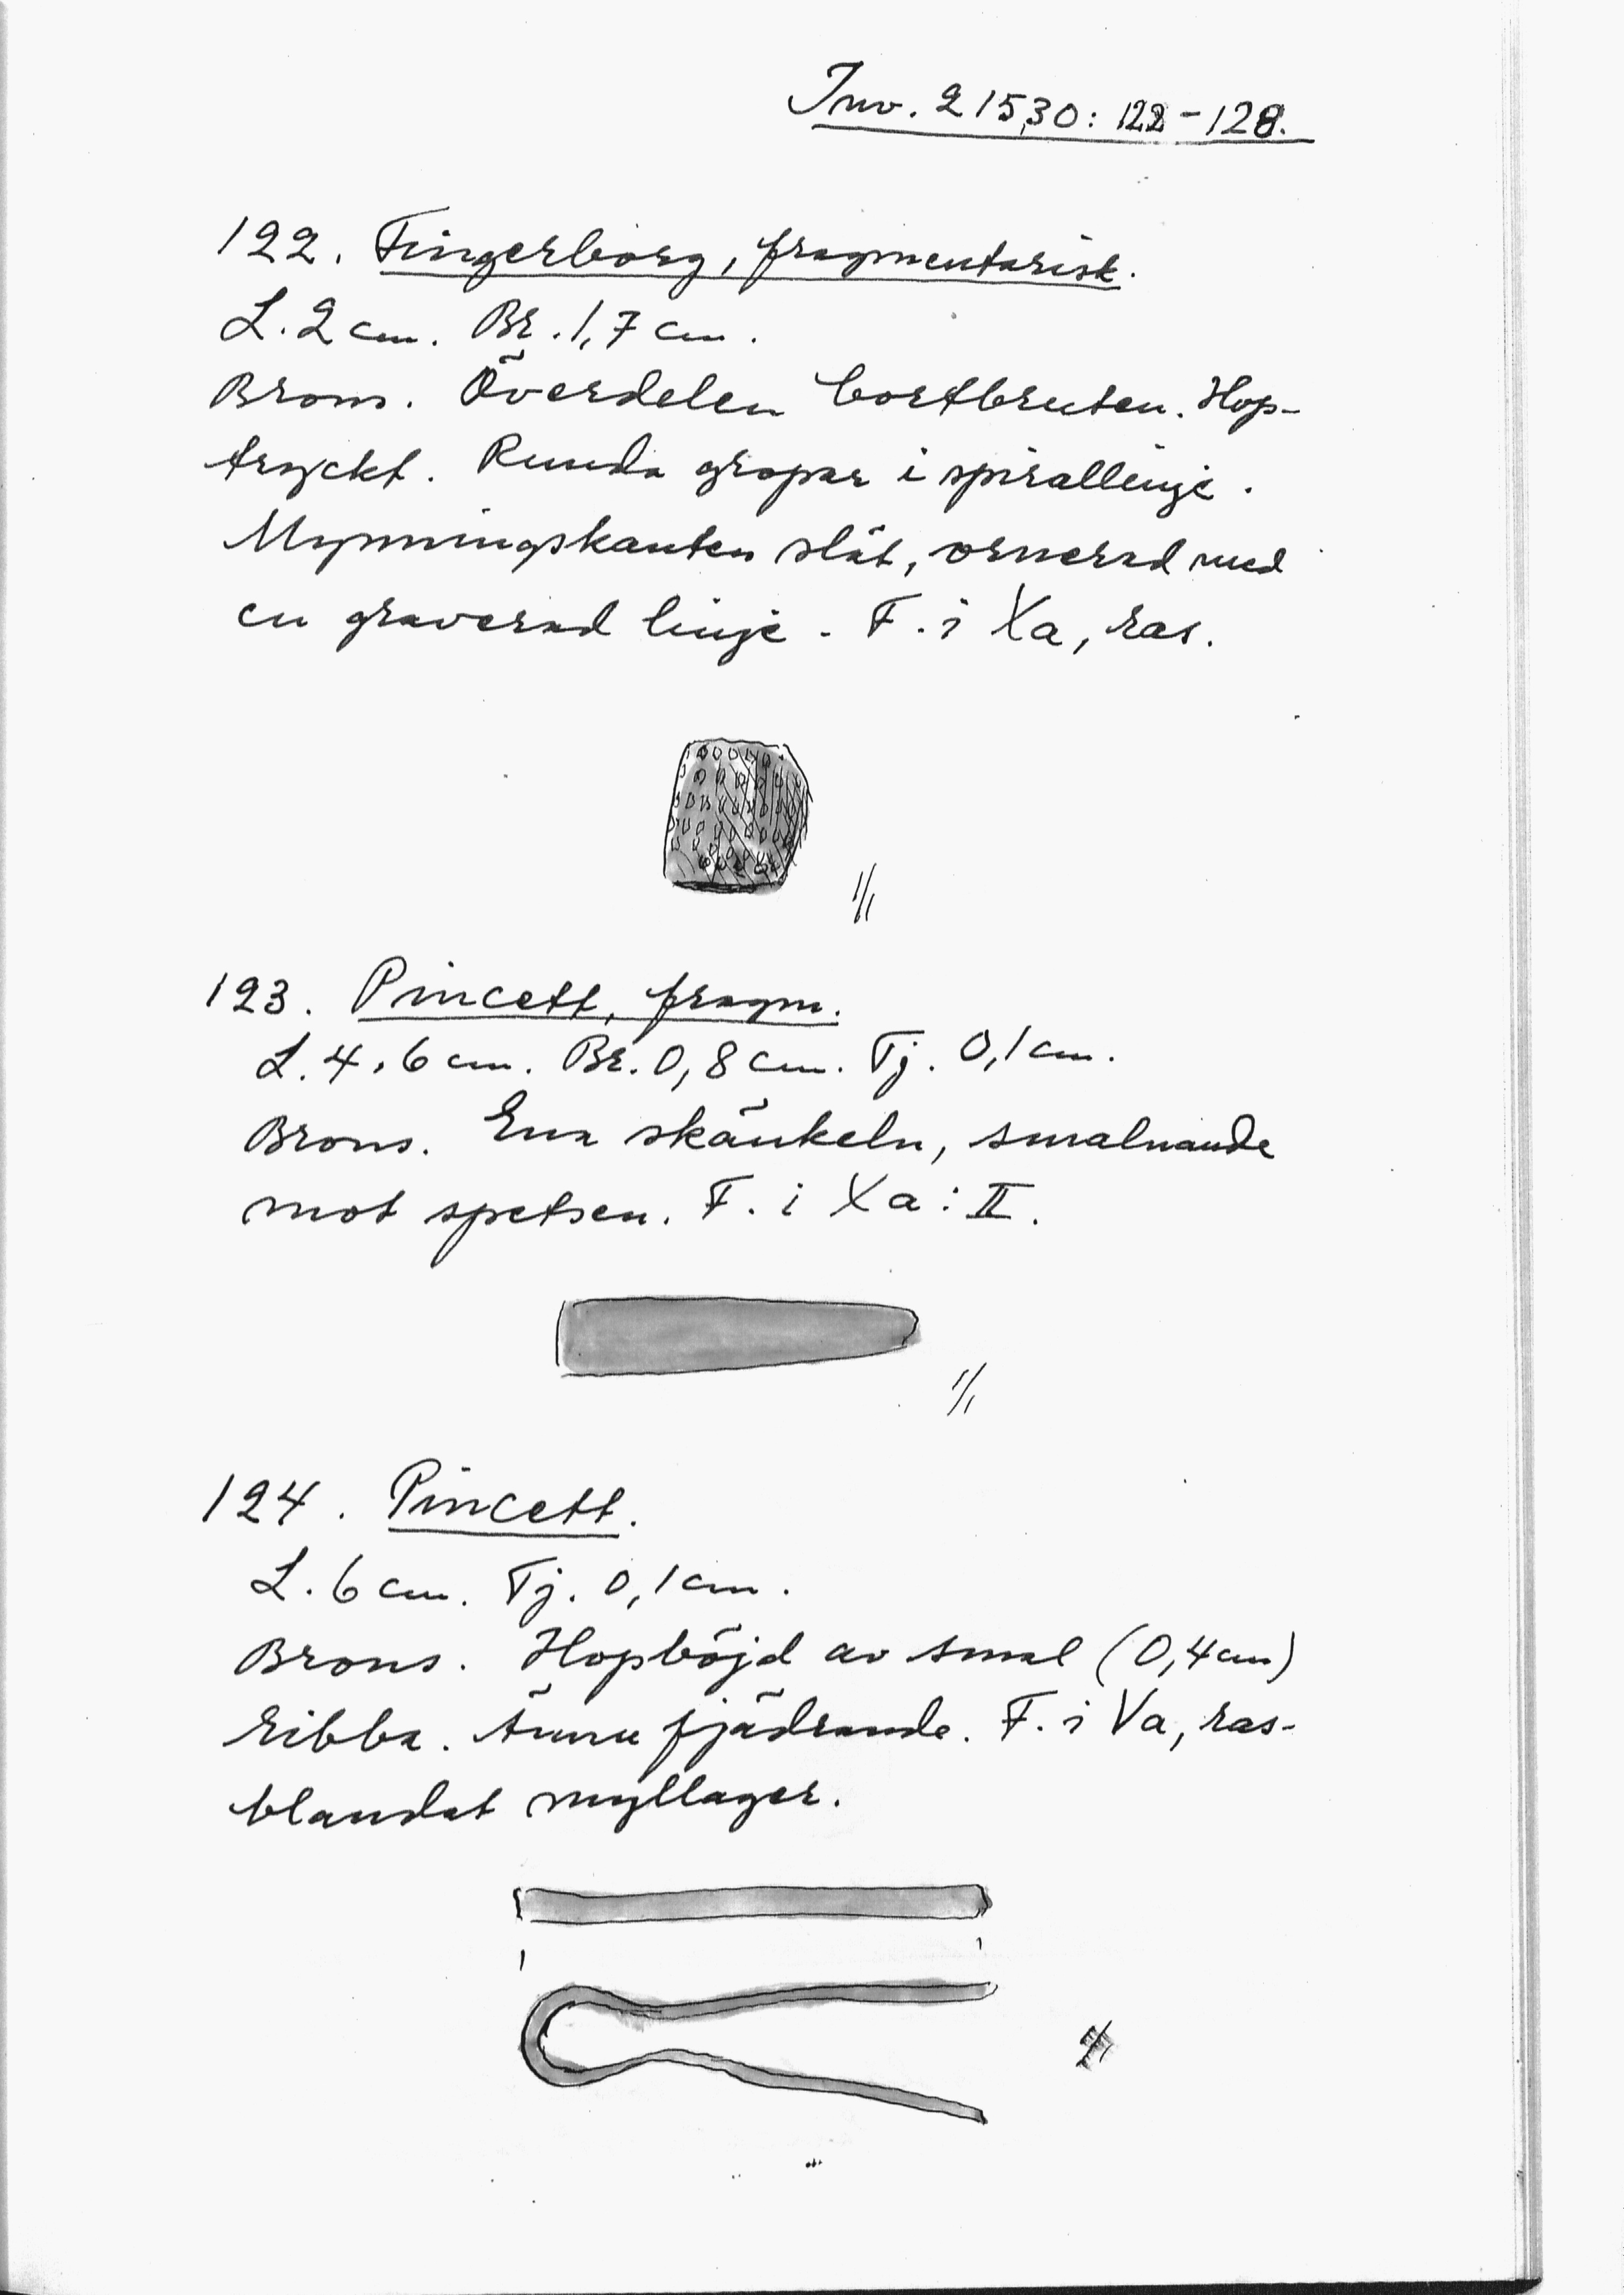 Inv. 21530: 122-128.
122. Fingerborg, fragmentarisk.
L. 2 cm. Br. 1,7 cm.
Brons. Överdelen bortbruten. Hop-
tryckt. Runda gropar i spirallinje.
Mynningskanten slät, ornerad med
en graverad linje. F. i Xa, ras.
1/1
123. Pincett, fragm.
L. 4,6 cm. Br. 0,8 cm. Tj. 0,1 cm.
Brons. Ena skänkeln, smalnande
mot spetsen. F. i Xa: II.
1/1
124. Pincett.
L. 6 cm. Tj. 0,1 cm.
Brons. Hopböjd av smal (0,4 cm)
ribba. Ännu fjädrande. F. i Va, ras-
blandat myllager.
1/1